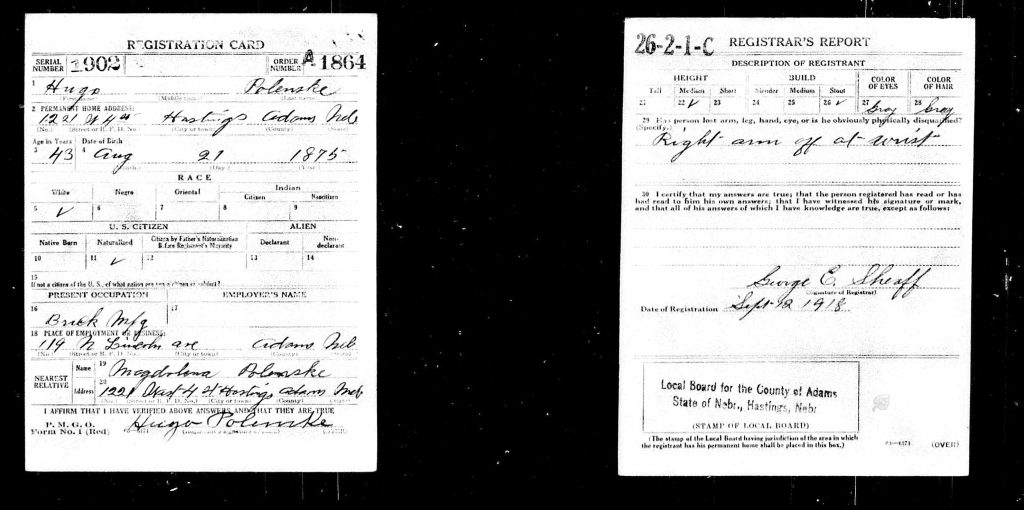 REGISTRATION CARD
SERIAL NUMBER 1902 ORDER NUMBER A 1864
1 Hugo Polenske
(First name) (Middle name) (Last name)
2 PERMANENT HOME ADDRESS:
1221 W 4th Hastings Adams Neb
(No.) (Street or R. F. D. No.) (City or town) (County) (State)
Age in Years Date of Birth
3 43 4 Aug 21 1875
(Month.) (Day.) (Year.)
RACE
White Negro Oriental Indian
Citizen Noncitizen
5 ✓ 6 7 8 9
U. S. CITIZEN ALIEN
Native Born Naturalized Citizen by Father's Naturalization Before Registrant's Majority Declarant Non-declarant
10 11 ✓ 12 13 14
15
If not a citizen of the U. S., of what nation are you a citizen or subject?
PRESENT OCCUPATION EMPLOYER'S NAME
16 Brick Mfg 17
18 PLACE OF EMPLOYMENT OR BUSINESS:
119 N Lincoln ave Adams Neb
(No.) (Street or R. F. D. No.) (City or town) (County) (State)
NEAREST RELATIVE Name 19 Magdalena Polenske
Address 20 1221 West 4 St Hastings Adams Neb
(No.) (Street or R. F. D. No.) (City or town) (County) (State)
I AFFIRM THAT I HAVE VERIFIED ABOVE ANSWERS AND THAT THEY ARE TRUE
P. M. G. O.
Form No. 1 (Red) Hugo Polenske
26-2-1-C REGISTRAR'S REPORT
DESCRIPTION OF REGISTRANT
HEIGHT BUILD COLOR OF EYES COLOR OF HAIR
Tall Medium Short Slender Medium Stout
21 22 ✓ 23 24 25 26 ✓ 27 Gray 28 Gray
29 Has person lost arm, leg, hand, eye, or is he obviously physically disqualified?
(Specify.)
Right arm off at wrist
30 I certify that my answers are true; that the person registered has read or has
had read to him his own answers; that I have witnessed his signature or mark,
and that all of his answers of which I have knowledge are true, except as follows:
George E. Sheaff
(Signature of Registrar)
Date of Registration Sept 12 1918
Local Board for the County of Adams
State of Nebr., Hastings, Nebr
(STAMP OF LOCAL BOARD)
(The stamp of the Local Board having jurisdiction of the area in which
the registrant has his permanent home shall be placed in this box.)
03—6171 (OVER)